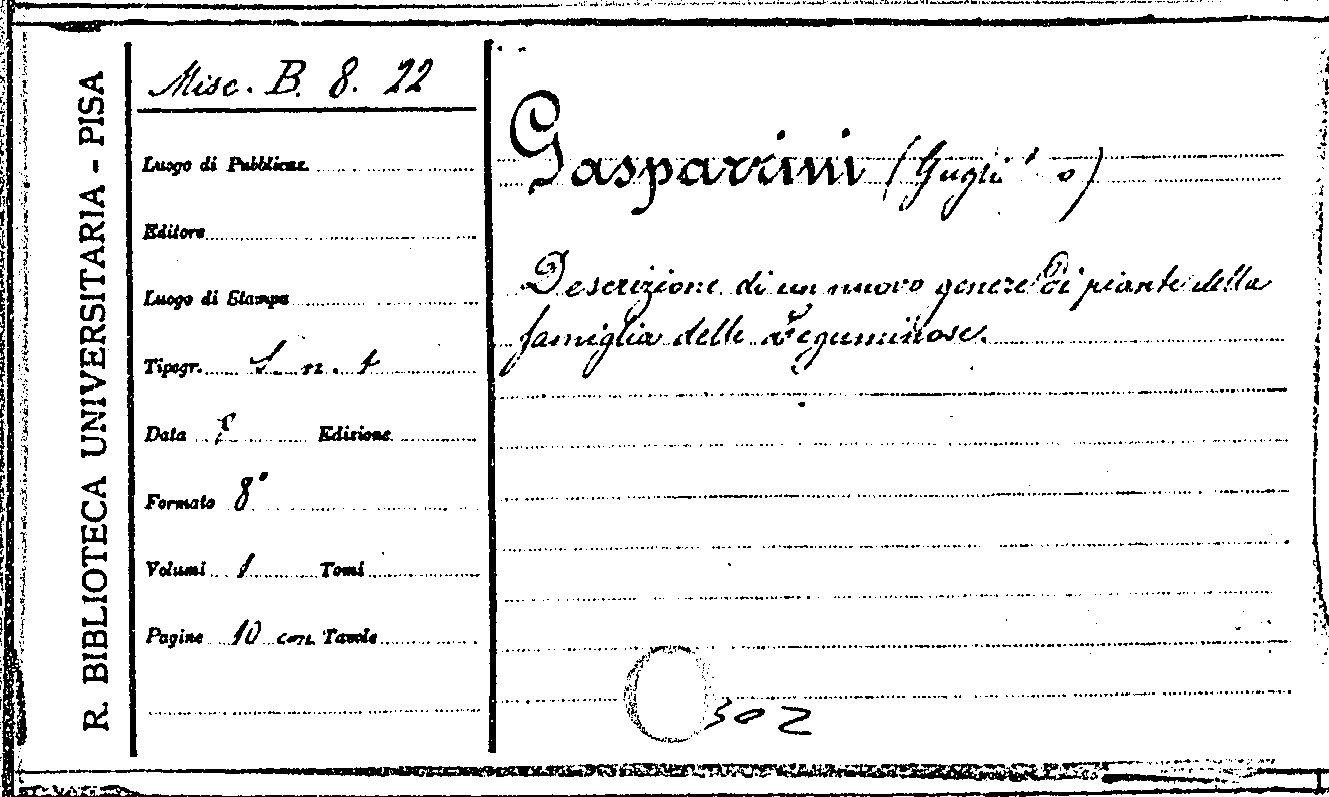 R. BIBLIOTECA UNIVERSITARIA - PISA
Misc. B. 8. 22
Luogo di Pubblicaz.
Editore
Luogo di Stampa
Tipogr. S. n. t
Data Edizione
Formato 8°
Volumi 1 Tomi
Pagine 10 con Tavole
Gasparrini
Descrizione di un nuovo genere di piante della
famiglia delle Leguminose.
302